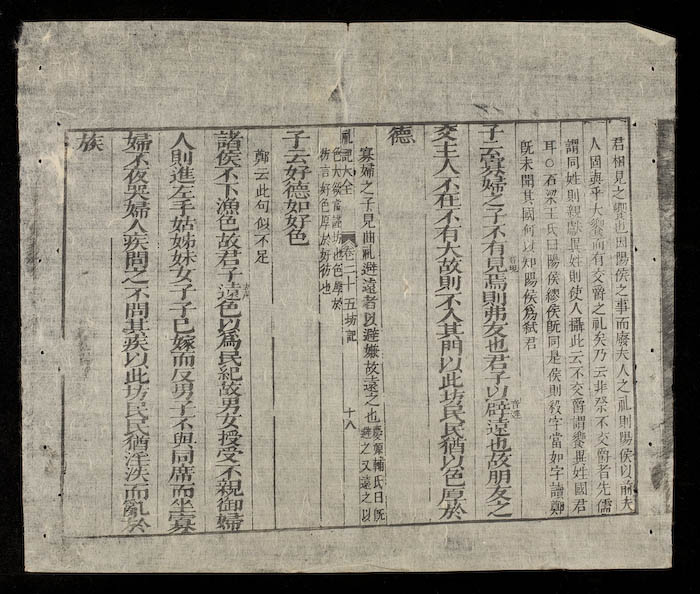 君相見之饗也因陽侯之事而廢夫人之礼則陽侯以前夫
人固與乎大饗而有交爵之礼矣乃云非祭不交爵者先儒
謂同姓則親獻異姓則使人攝此云不交爵謂饗異姓國君
耳○石梁王氏曰陽侯繆侯既同是侯則殺字當如字讀鄭
既未聞其國何以知陽侯爲弑君
子云寡婦之子不有見焉則弗友也君子以辟遠也故朋友之
音現
交主人不在不有大故則不入其門以此坊民民猶以色厚於
德
寡婦之子見曲礼避遠者以避嫌故遠之也
慶源輔氏曰既
避之又遠之以
礼記大全 卷二十五坊記 十八
坊也色厚於
言好色厚於好
也
子云好德如好色
鄭云此句似不足
諸侯不下漁色故君子遠色以爲民紀故男女授受不親御婦
人則進左手姑姊妹女子子已嫁而反男子不與同席而坐寡
婦不夜哭婦人疾問之不問其疾以此坊民民猶淫泆而亂於
族